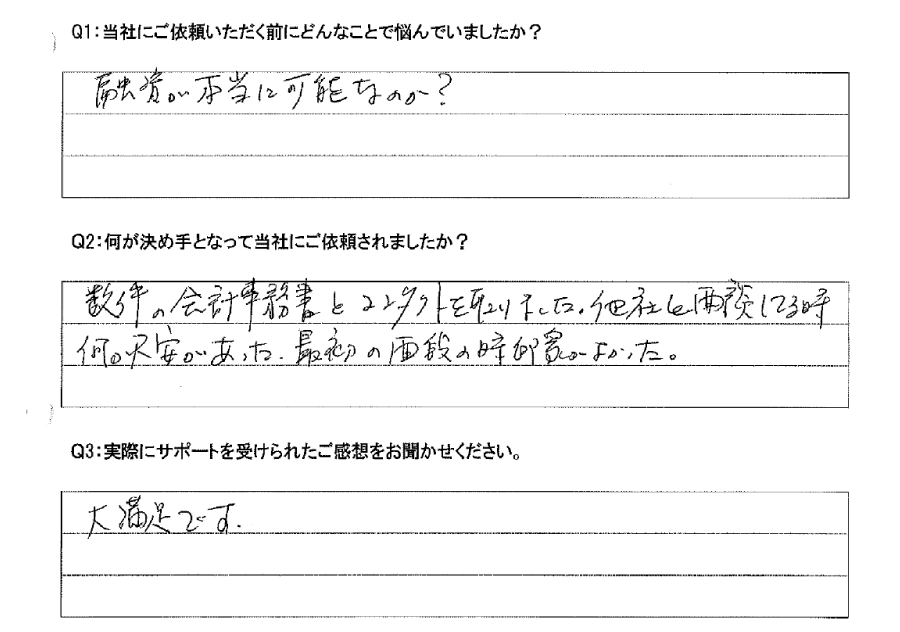 Q1:当社にご依頼いただく前にどんなことで悩んでいましたか？
融資が本当に可能なのか?
Q2:何が決め手となって当社にご依頼されましたか？
数件の会計事務書とコンタクトを取りました。他社と面談してる時
何か不安があった、最初の面段の時印象がよかった。
Q3:実際にサポートを受けられたご感想をお聞かせください。
大満足です.